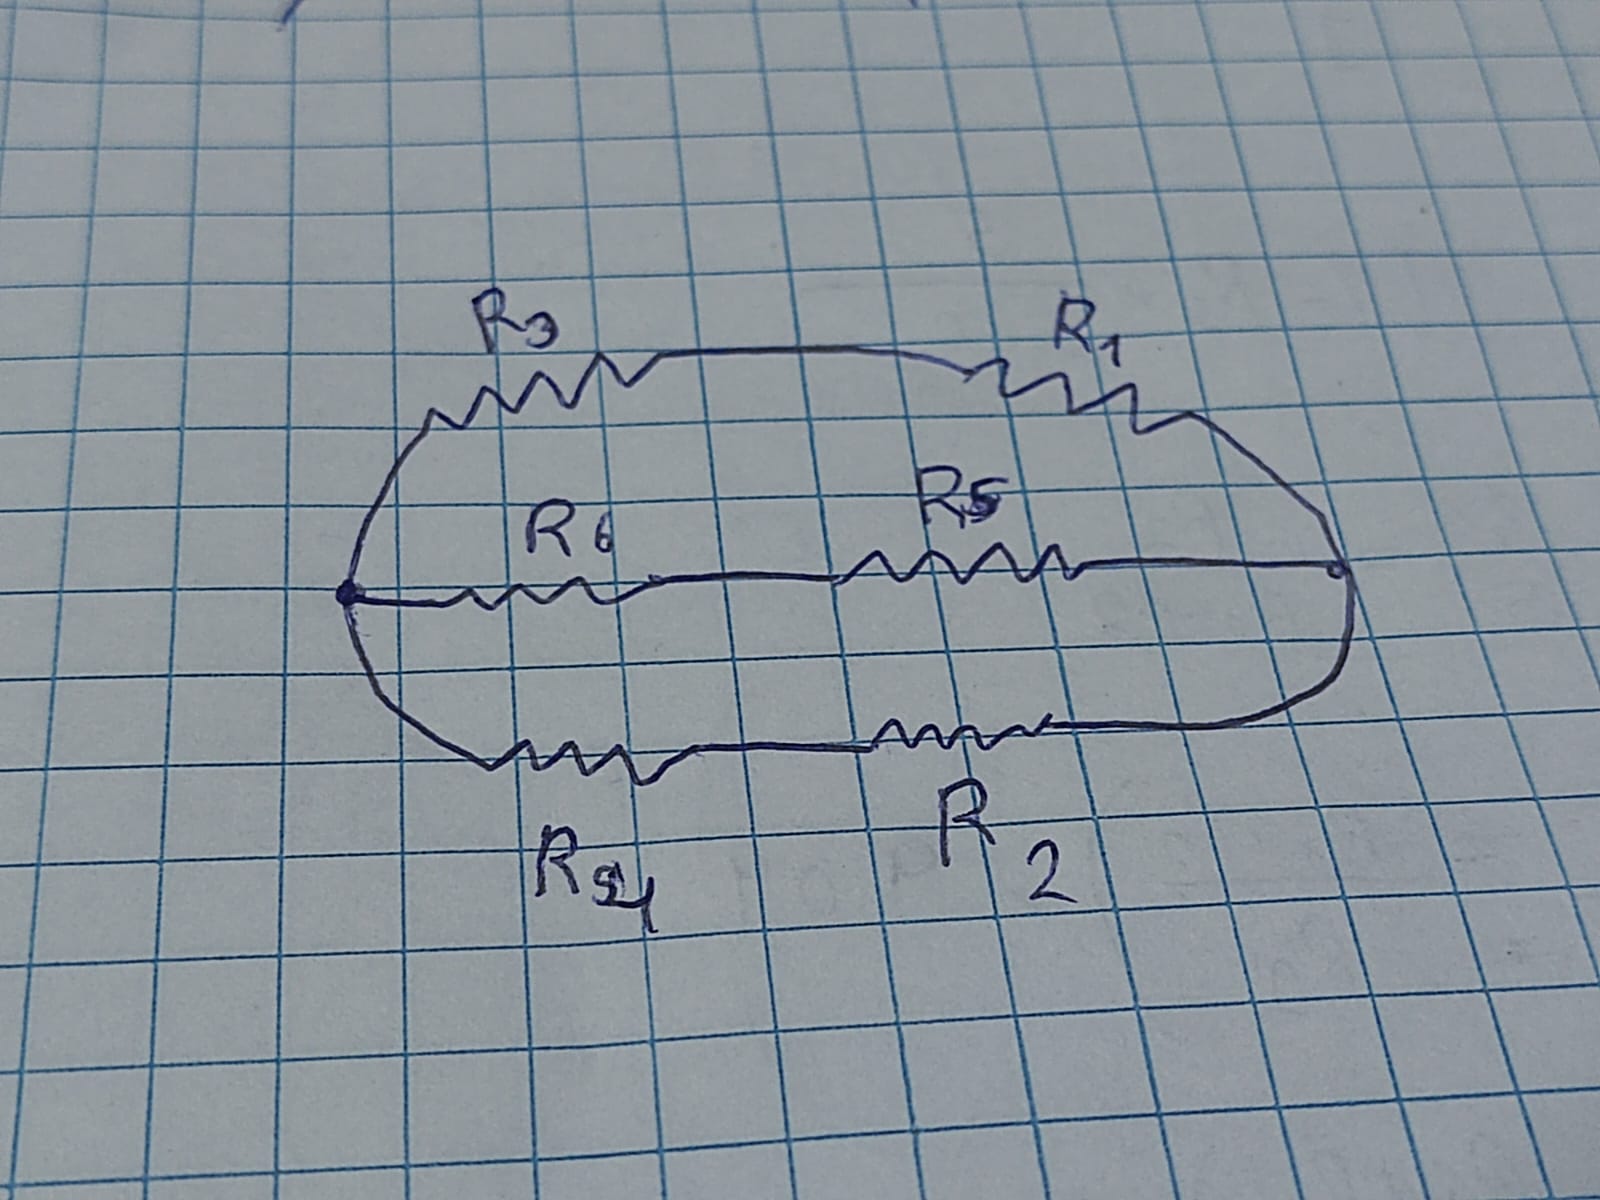 R3 R1
R6 R5
R4 R2